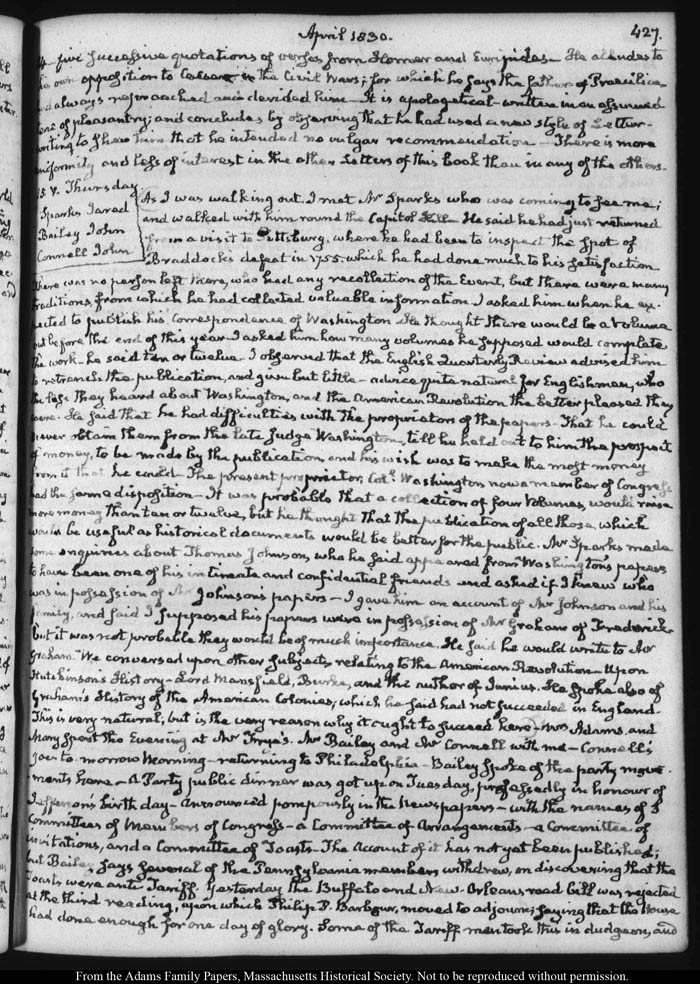 April 1830.
427.
4— five successive quotations of verses from Homer and Euripides— He alludes to
his own opposition to Caesar in the Civil Wars; for which he says the father of Praecilius
had always reproached and derided him— It is apologetical— written in an assumed
tone of pleasantry; and concludes by observing that he had used a new style of Letter-
writing to shew him that he intended no vulgar recommendation— There is more
uniformity and less of interest in the other Letters of this book than in any of the others.
15. V. Thursday
Sparks Jared
Bailey John
Connell John
As I was walking out, I met Mr Sparks who was coming to see me;
and walked with him round the Capitol Hill— He said he had just returned
from a visit to Pittsburg, where he had been to inspect the spot of
Braddock's defeat in 1755. which he had done much to his satisfaction
There was no person left there, who had any recollection of the Event, but there were many
traditions, from which he had collected valuable information. I asked him when he ex-
pected to publish his Correspondence of Washington He thought there would be a Volume
out before the end of this year— I asked him how many volumes he supposed would complete
the work— he said ten or twelve— I observed that the English Quarterly Review advised him
to retrench the publication, and give but little— advice quite natural for Englishmen, who
the less they heard about Washington, and the American Revolution the better pleased they
were. He said that he had difficulties with the proprietors of the papers— That he could
never obtain them from the late Judge Washington, till he held out to him the prospect
of money, to be made by the publication, and his wish was to make the most money
from it that he could— The present proprietor, Coll. Washington now a member of Congress
had the same disposition— It was probable that a collection of four Volumes, would raise
more money than ten or twelve, but he thought that the publication of all those, which
would be useful as historical documents would be better for the public. Mr Sparks made
some enquiries about Thomas Johnson, who he said appeared from Washington's papers
to have been one of his intimate and confidential friends and asked if I knew who
was in possession of Mr Johnson's papers— I gave him an account of Mr Johnson and his
family, and said I supposed his papers were in possession of Mr Graham of Frederick
but it was not probable they would be of much importance. He said he would write to Mr
Graham. We conversed upon other subjects, relating to the American Revolution— Upon
Hutchinson's History— Lord Mansfield, Burke, and the author of Junius. He spoke also of
Graham's History of the American Colonies, which he said had not succeeded in England—
This is very natural, but is the very reason why it ought to succeed here— Mrs Adams, and
Mary spent the Evening at Mr Frye's. Mr Bailey and Mr Connell with me— Connell,
goes to-morrow Morning— returning to Philadelphia— Bailey spoke of the party move-
ments here— A Party public dinner was got up on Tuesday, professedly in honour of
Jefferson's birth day— announced pompously in the Newspapers— with the names of 3
Committees of Members of Congress— a Committee of Arrangements— a Committee of
invitations, and a Committee of Toasts— The Account of it has not yet been published;
but Bailey, says several of the Pennsylvania members withdrew, on discovering that the
Toasts were anti Tariff. Yesterday the Buffalo and New-Orleans, road bill was rejected
at the third reading, upon which Philip P. Barbour, moved to adjourn; saying that the House
had done enough for one day of glory. Some of the Tariff men took this in dudgeon, and
From the Adams Family Papers, Massachusetts Historical Society. Not to be reproduced without permission.